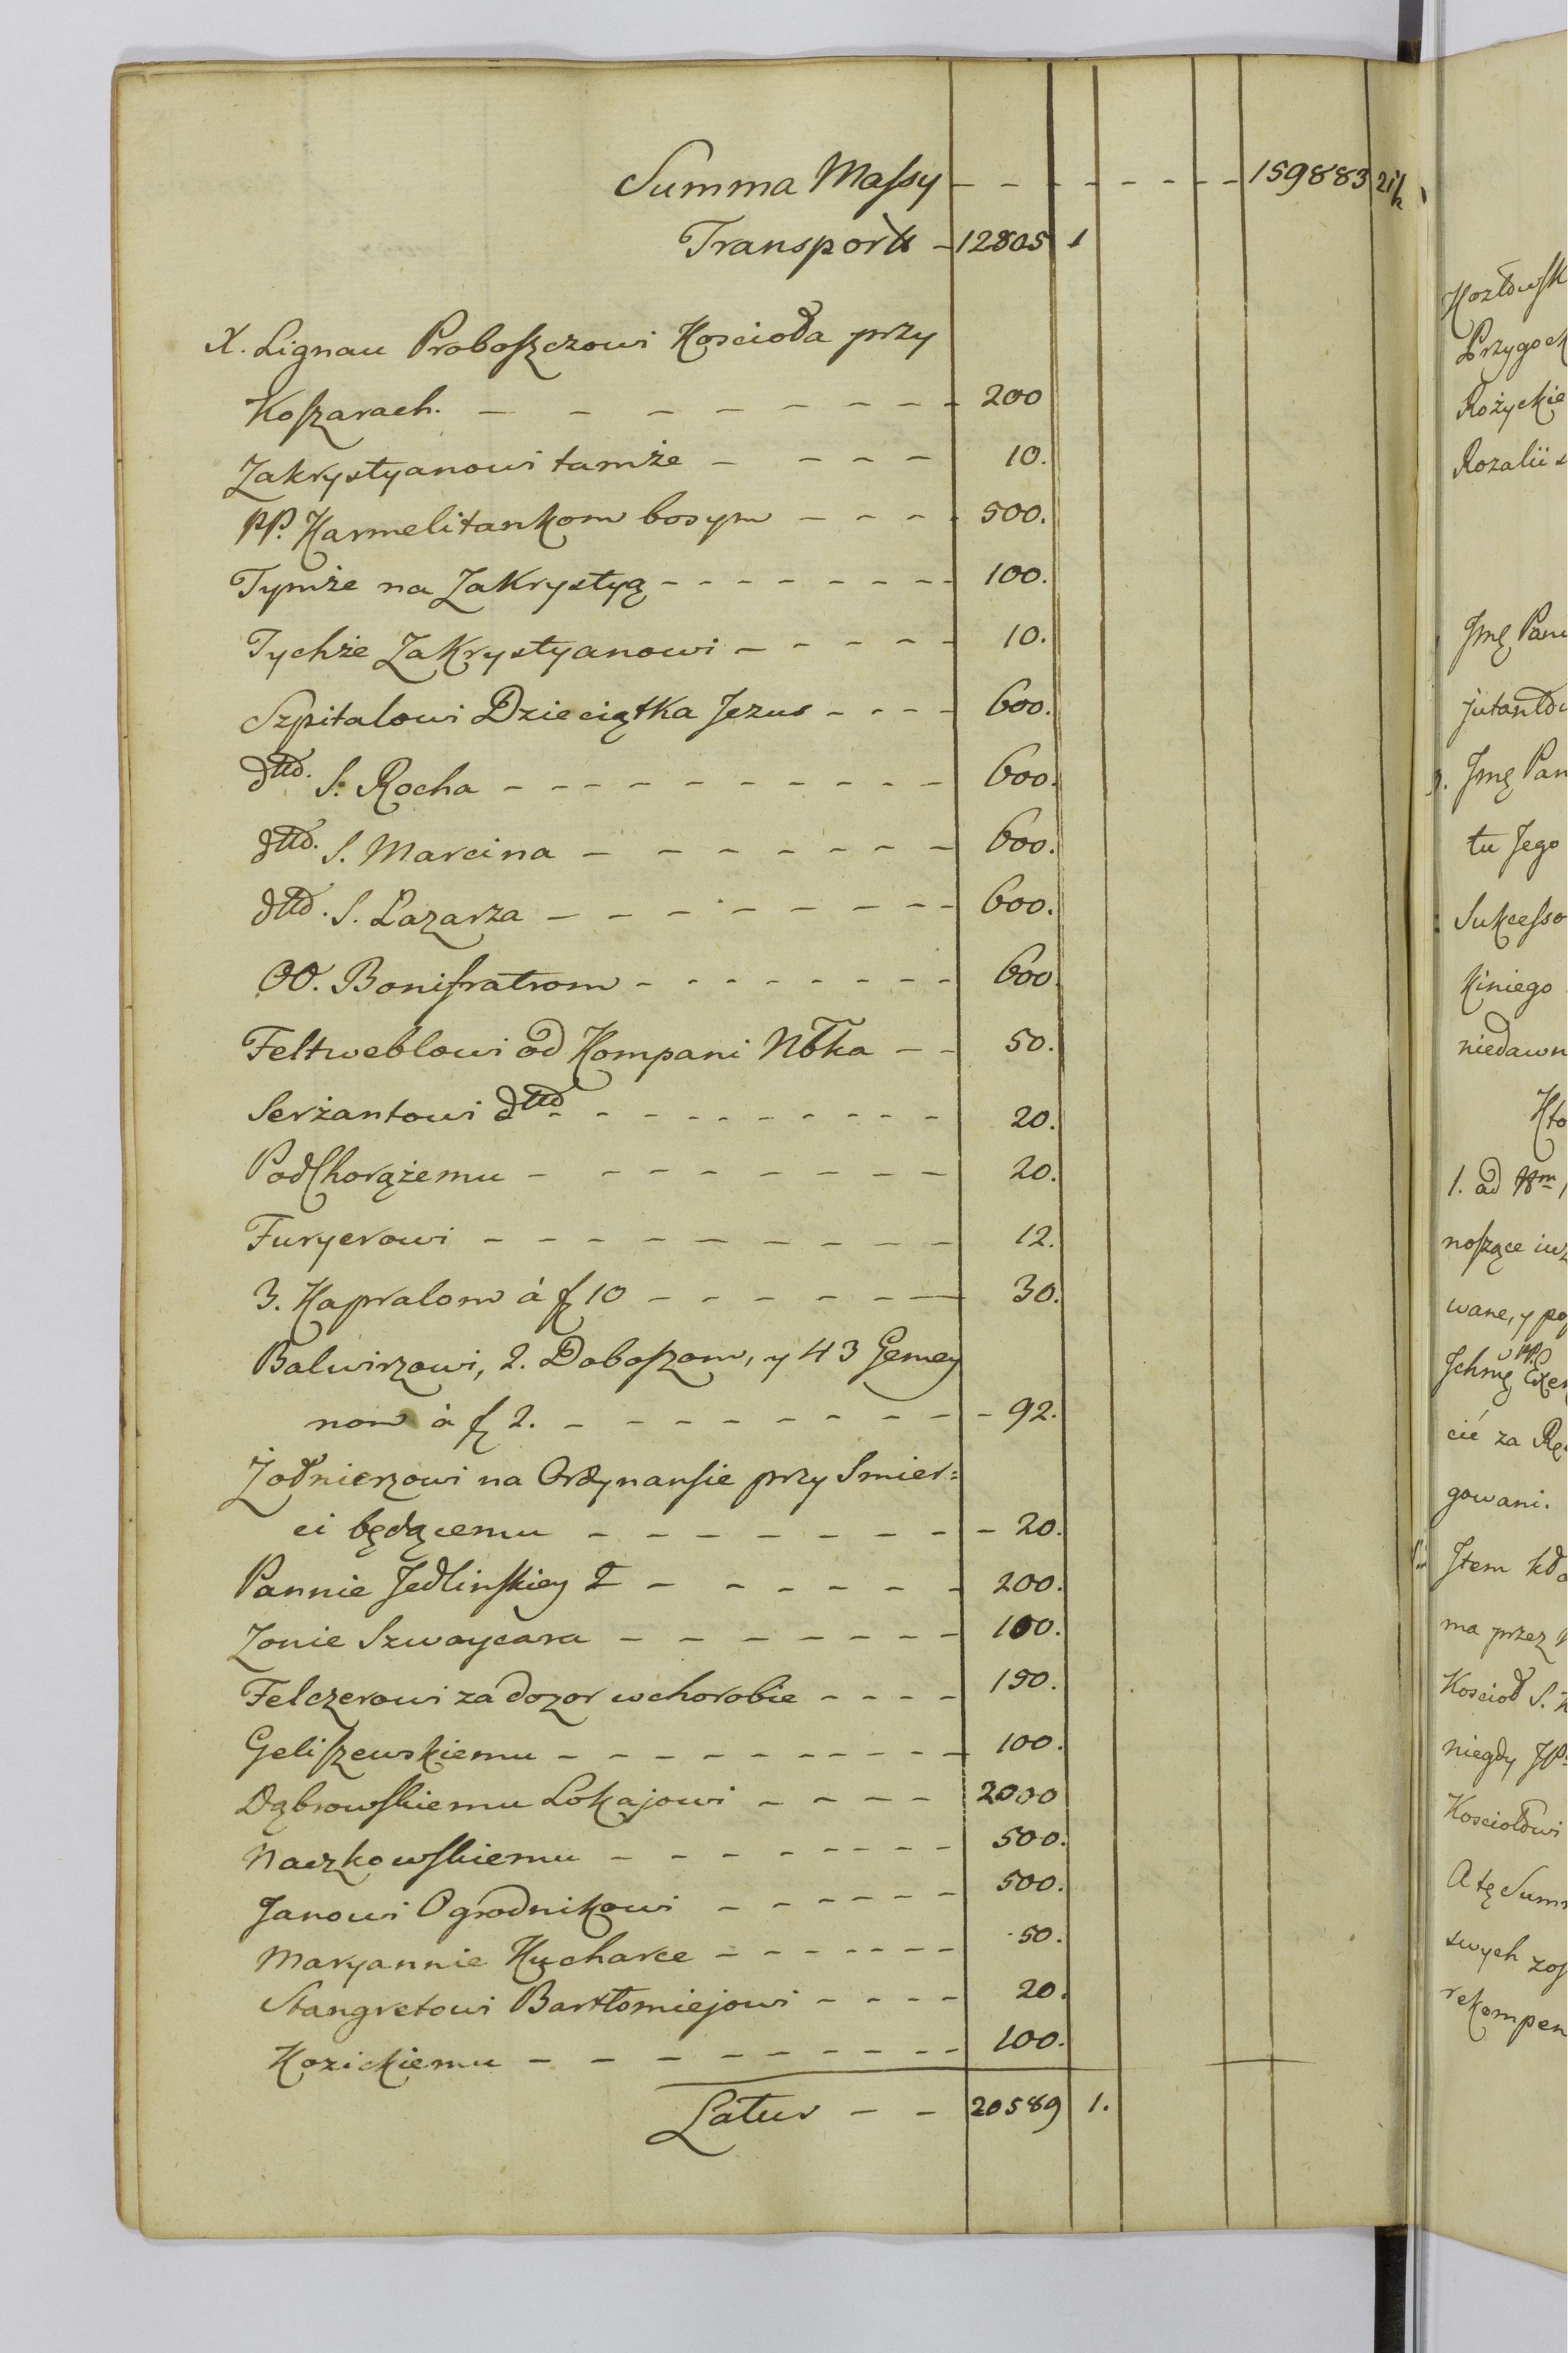 Summa Massy - - - - - - - 159883 21½
Transport - 12805 1
X. Lignau Proboszczowi Koscioła przy
Koszarach. - - - - - - - - 200
Zakrystyanowi tamże - - - - 10.
PP. Karmelitankom bosym - - - - 500.
Tymże na Zakrystyą - - - - - - - - 100.
Tychże Zakrystyanowi - - - - - 10.
Szpitalowi Dzieciątka Jezus - - - - 600.
dtto. S. Rocha - - - - - - - - - - 600.
dtto. S. Marcina - - - - - - - 600.
dtto. S. Lazarza - - - - - - - - 600.
OO. Bonifratrom - - - - - - - - 600.
Feltweblowi od Kompani Nbka - - 50.
Serżantowi dtto - - - - - - - - - - 20.
PodChorążemu - - - - - - - - - 20.
Furyerowi - - - - - - - - - - 12.
3. Kapralom à f 10 - - - - - - - 30.
Balwirzowi, 2. Doboszom, y 43 Gemey
nom à f 2. - - - - - - - - - - 92.
Żołnierzowi na Ordynansie przy Smier=
ci będącemu - - - - - - - - - 20.
Pannie Jedlinskiey - - - - - - 200.
Zonie Szwaycara - - - - - - - - 100.
Felczerowi za dozor w chorobie - - - - 150.
Geliszewskiemu - - - - - - - - - - 100.
Dąbrowskiemu Lokajowi - - - - 2000
Naczkowskiemu - - - - - - - - 500.
Janowi Ogrodnikowi - - - - - - 500.
Maryannie Kucharce - - - - - - - 50.
Stangretowi Bartłomiejowi - - - - 20.
Kozickiemu - - - - - - - - - 100.
Latus - - 20589 1.
Rozalii
Jmę
Jmę
tu Jego
kiniego
wane, y
cić za
gowani.
Jtem
ma przez
Koscioł S.
niegdy
A tę
swych